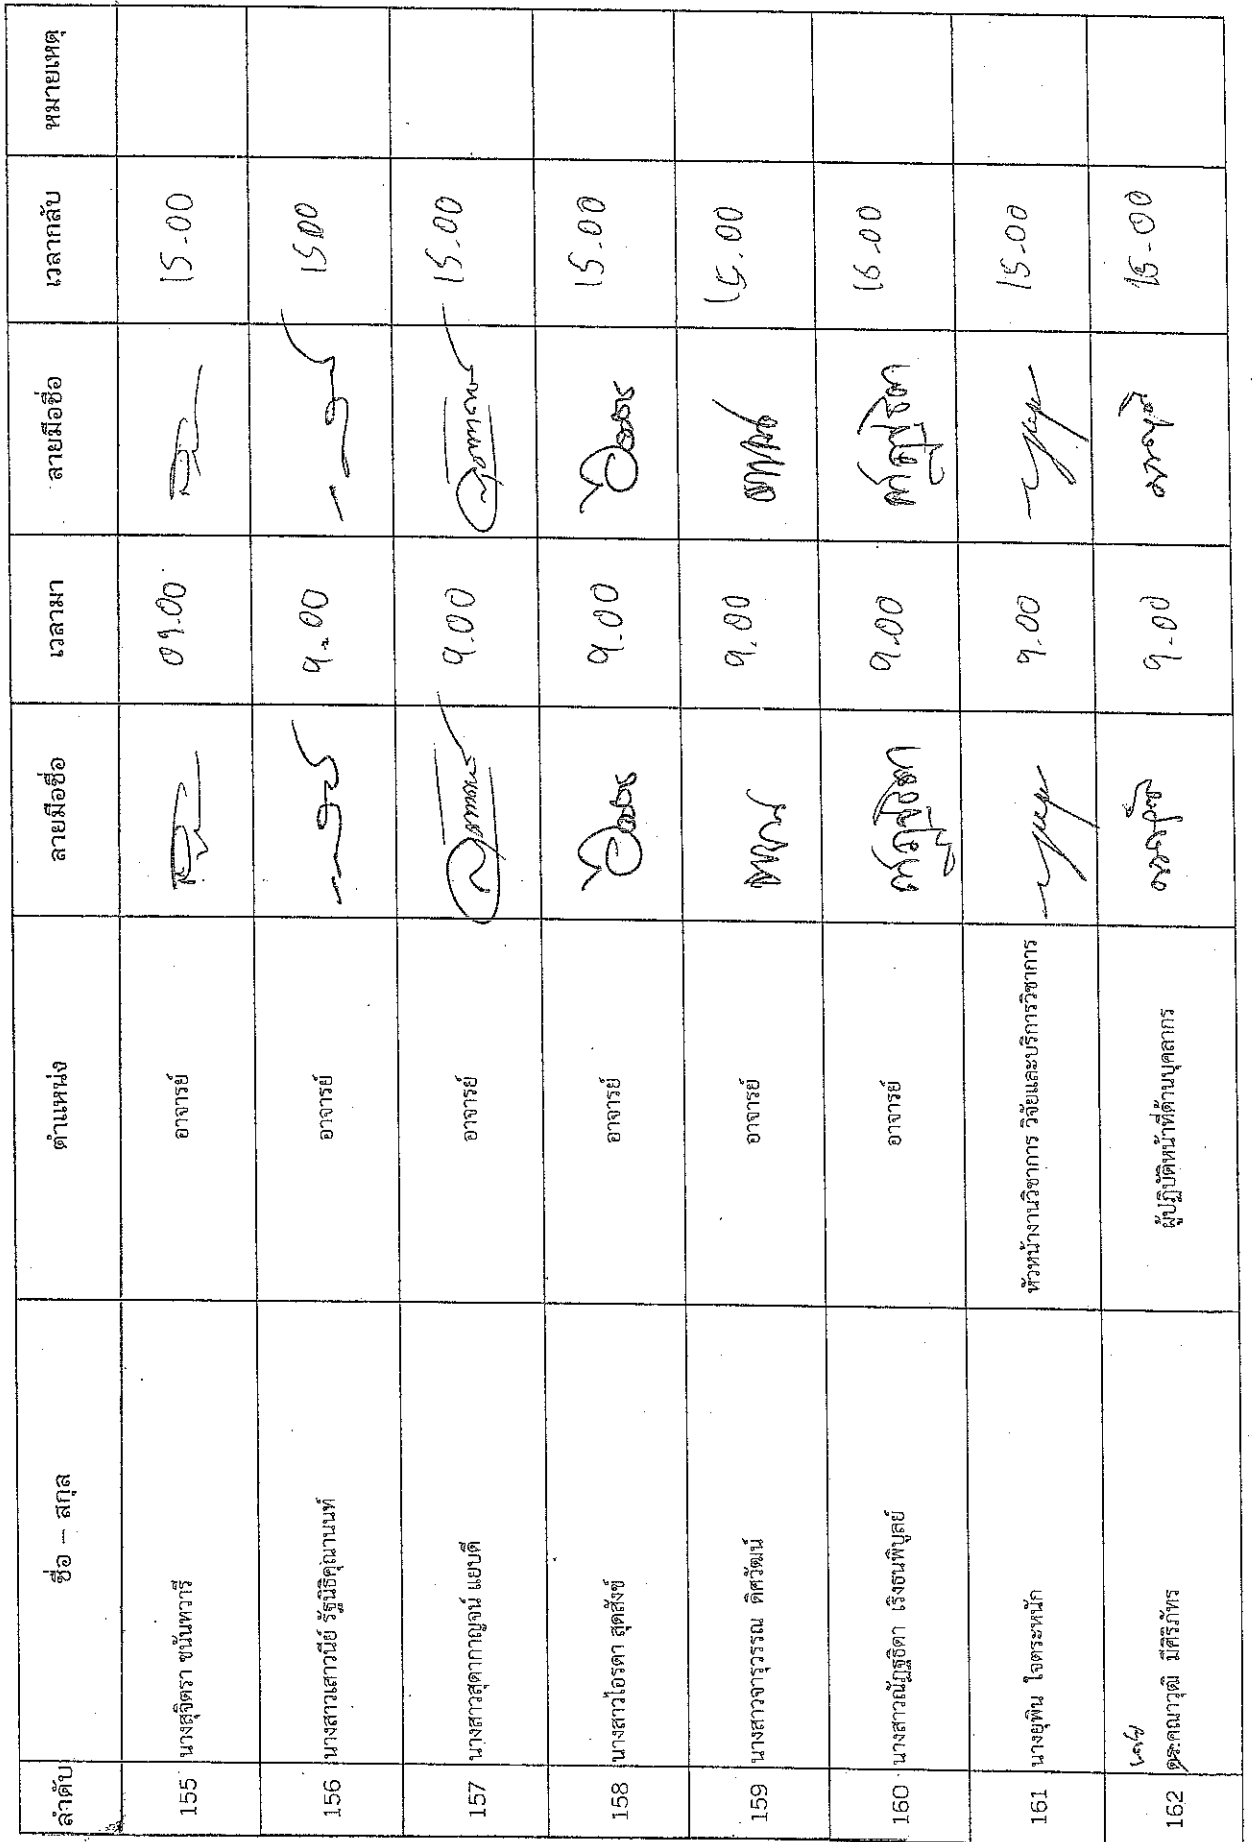 ลำดับ ชื่อ – สกุล ตำแหน่ง ลายมือชื่อ เวลามา ลายมือชื่อ เวลากลับ หมายเหตุ
155 นางสุจิตรา ชนันทวารี อาจารย์ 09.00 15-00
156 นางสาวเสาวนีย์ รัฐนิธิคุณานนท์ อาจารย์ 9.00 1500
157 นางสาวสุดากาญจน์ แยบดี อาจารย์ 9.00 15.00
158 นางสาวไอรดา สุดสังข์ อาจารย์ 9.00 15.00
159 นางสาวจารุวรรณ ดิศวัฒน์ อาจารย์ 9.00 15.00
160 นางสาวณัฏฐธิดา เริงธนพิบูลย์ อาจารย์ ณัฏฐธิดา 9.00 ณัฏฐธิดา 15.00
161 นางยุพิน ใจตระหนัก หัวหน้างานวิชาการ วิจัยและบริการวิชาการ 9.00 15-00
นาย
162 คณาวุฒิ มีศิริภัทร ผู้ปฏิบัติหน้าที่ด้านบุคลากร 9.00 15-00